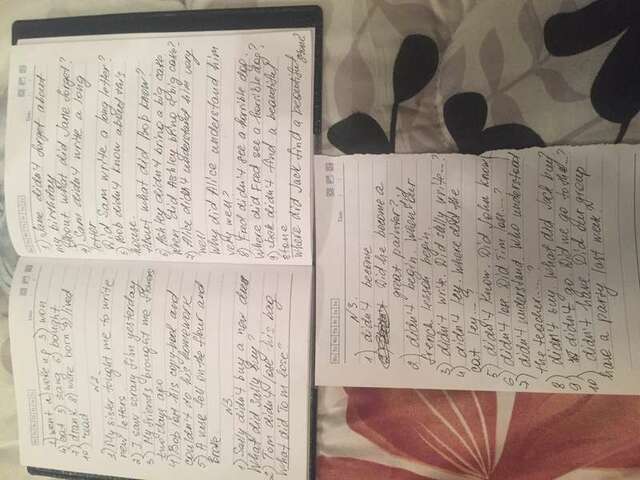 1) went 2) woke up 3) won
4) eat 5) sang 6) bought
7) drank 8) were born 9) lived
10) read
N2
1) My sister tought me to write
new letters
2) I saw scrary film yesterday
3) My friends brought me flowers
two days ago
4) Bob lost his copy-book and
couldn't do his homework
5) A vase fell on the flour and
broke
N3
1) Sally didn't buy a new dress
What did Sally buy?
2) Tom didn't lose his bag
What did Tom lose?
Date
3) Jane didn't forget about
my birthday
About what did Jane forget?
4) Sam didn't write a long
letter
Did Sam write a long letter?
5) Bob didn't know about this
house.
About what did Bob know?
6) Ashley didn't bring a big cake
When did Ashley bring a big cake?
7) Alice didn't understand him very
well
Why did Alice understand him
very well?
8) Fred didn't see a horrible dog.
Where did Fred see a horrible dog?
9) Jack didn't find a beautiful
stone
Where did Jack find a beautiful stone?
Date
N3.
1) didn't become
Did he become a
great painter?
2) didn't begin. When did our
french lesson begin.
3) didn't write. Did Sally write...?
4) didn't ley. Where did the
cat ley....?
5) didn't know. Did John know
6) didn't lose. Did Tim lose....?
7) didn't understand. Who understand
the teacher.....?
8) didn't buy. What did Jack buy?
9) didn't go. Did we go to the...?
10) didn't have. Did our group
have a party last week?